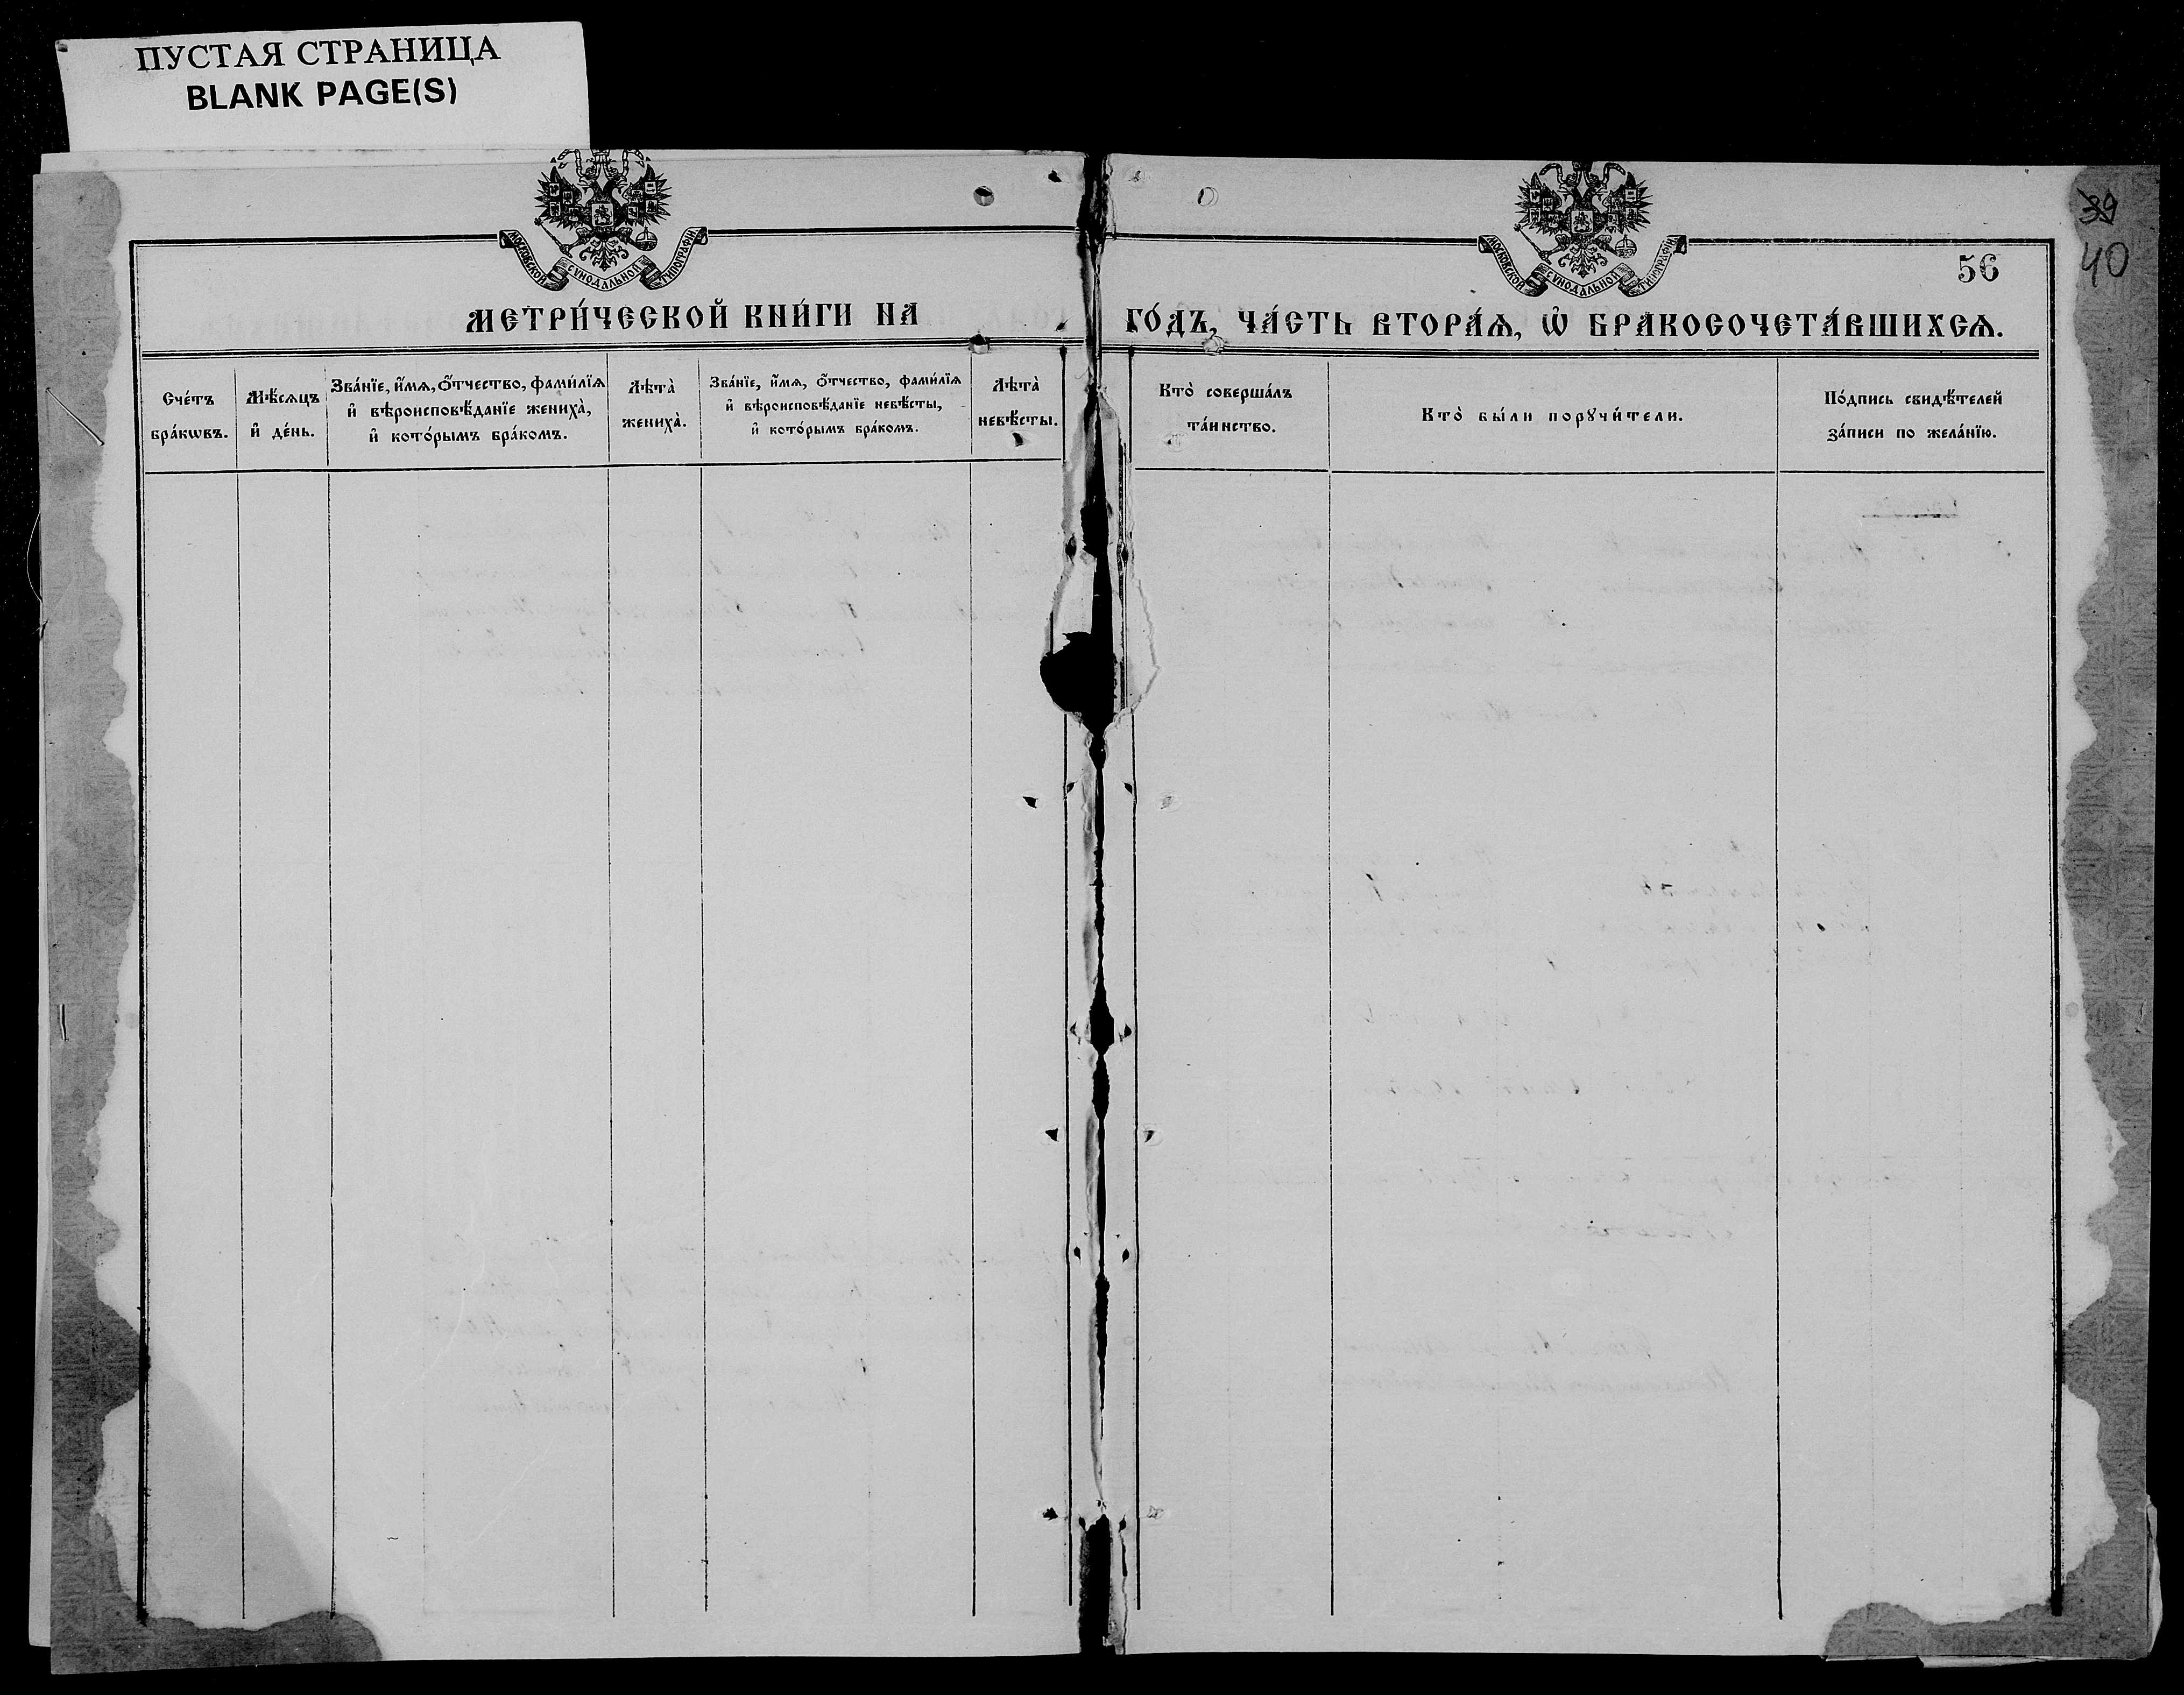 ПУСТАЯ СТРАНИЦА
BLANK PAGE(S)
МОСКОВСКОЙ СѴНОДАЛЬНОЙ ТИПОГРАФІИ
МОСКОВСКОЙ СѴНОДАЛЬНОЙ ТИПОГРАФІИ
39
40
56
МЕТРИ́ЧЕСКОЙ КНИ́ГИ НА
ГО́ДЪ, ЧА́СТЬ ВТОРА́Ѧ, Ѡ҆ БРАКОСОЧЕТА́ВШИХСѦ.
Сче́тъ
бра́кѡвъ.
Мѣ́сѧцъ
и҆ де́нь.
Зва́нїе, и҆́мѧ, ѻ҆́тчество, фами́лїѧ
и҆ вѣроисповѣ́данїе жениха̀,
и҆ кото́рымъ бра́комъ.
Лѣта̀
жениха̀.
Зва́нїе, и҆́мѧ, ѻ҆́тчество, фами́лїѧ
и҆ вѣроисповѣ́данїе невѣ́сты,
и҆ кото́рымъ бра́комъ.
Лѣта̀
невѣ́сты.
Кто̀ соверша́лъ
та́инство.
Кто̀ бы́ли порꙋчи́тели.
По́дпись свидѣ́телей
за́писи по жела́нїю.